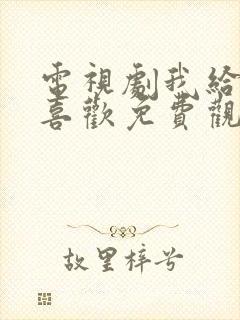 電視劇我給
喜歡免費觀
故里梓兮